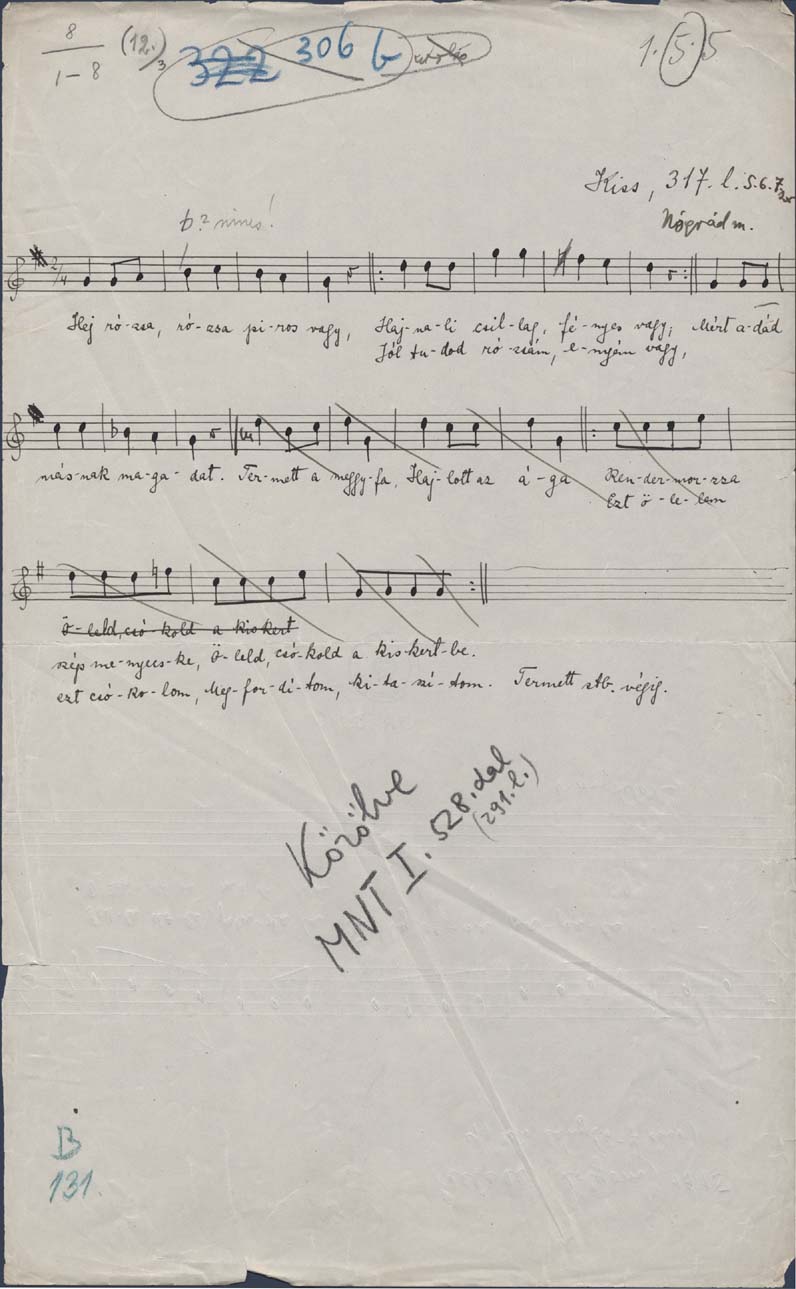 8
1–8
(12.)
3
322 306 b
1. 5. 5
Kiss, 317. l. 5.6.7.
Nógrád m.
b? nincs!
2/4
Hej ró-zsa, ró-zsa pi-ros vagy, Haj-na-li csil-lag, fé-nyes vagy; Mért a-dád
Jól tu-dod ró-zsám, e-nyém vagy,
más-nak ma-ga-dat. Ter-mett a meggy-fa, Haj-lott az á-ga Ren-der-mor-zsa
Ezt ö-le-lem
Ö-leld, csó-kold a kis kert
szép me-nyecs-ke, Ö-leld, csó-kold a kis-kert-be.
ezt csó-ko-lom, Meg-for-dí-tom, ki-ta-szí-tom. Termett stb. végig.
Közölve
MNT I. 528. dal
(291. l.)
B
131.